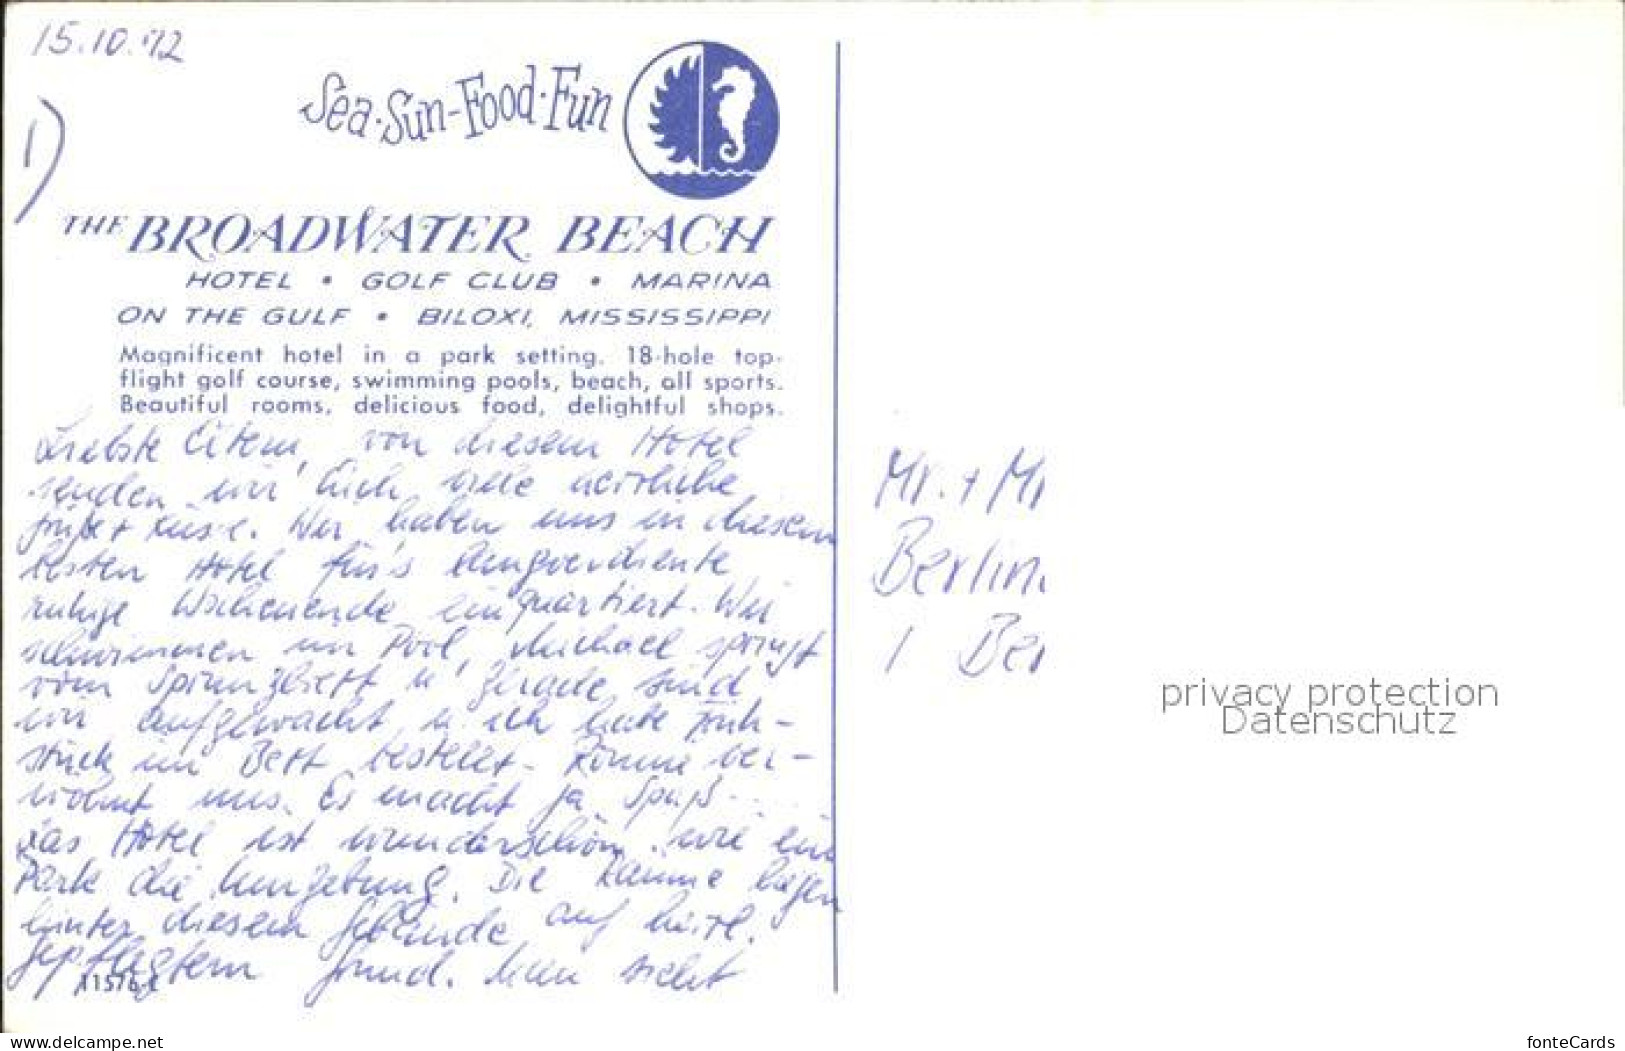 15.10.72
1)
Sea·Sun-Food·Fun
THE BROADWATER BEACH
HOTEL • GOLF CLUB • MARINA
ON THE GULF • BILOXI, MISSISSIPPI
Magnificent hotel in a park setting. 18-hole top-
flight golf course, swimming pools, beach, all sports.
Beautiful rooms, delicious food, delightful shops.
Liebste Eltern, von diesem Hotel
senden wir Euch viele herzliche
Grüße + Küsse. Wir haben uns in diesem
besten Hotel für's langverdiente
ruhige Wochenende einquartiert. Wir
schwimmen im Pool, Michael springt
vom Sprungbrett u. gerade sind
wir aufgewacht u. ich habe Früh-
stück im Bett bestellt - Romme ver-
wöhnt uns. Es macht ja Spaß...
Das Hotel ist wunderschön, wie ein
Park die Umgebung. Die Räume liegen
hinter diesem Gebäude auf herrl.
gepflegtem Grund. Man sieht
Mr. + Mr
Berlin
1 Ber
privacy protection
Datenschutz
www.delcampe.net
fonteCards